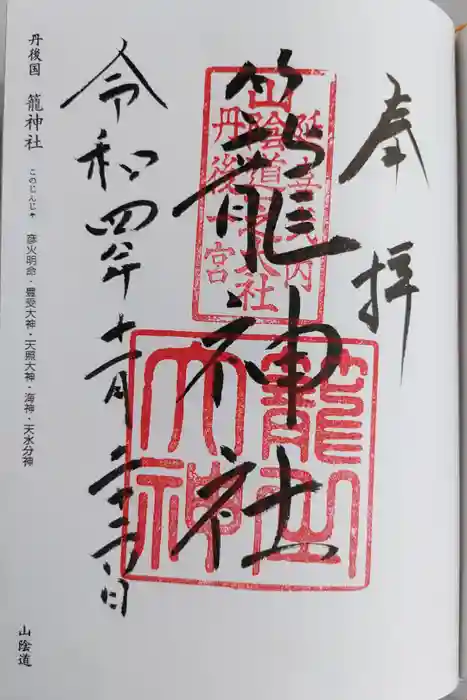 奉拝
延喜式内
山陰道之大社
丹後一宮
籠神社
籠之大神
令和四年十一月二十 日
丹後国 籠神社 このじんじゃ 彦火明命・豊受大神・天照大神・海神・天水分神 山陰道